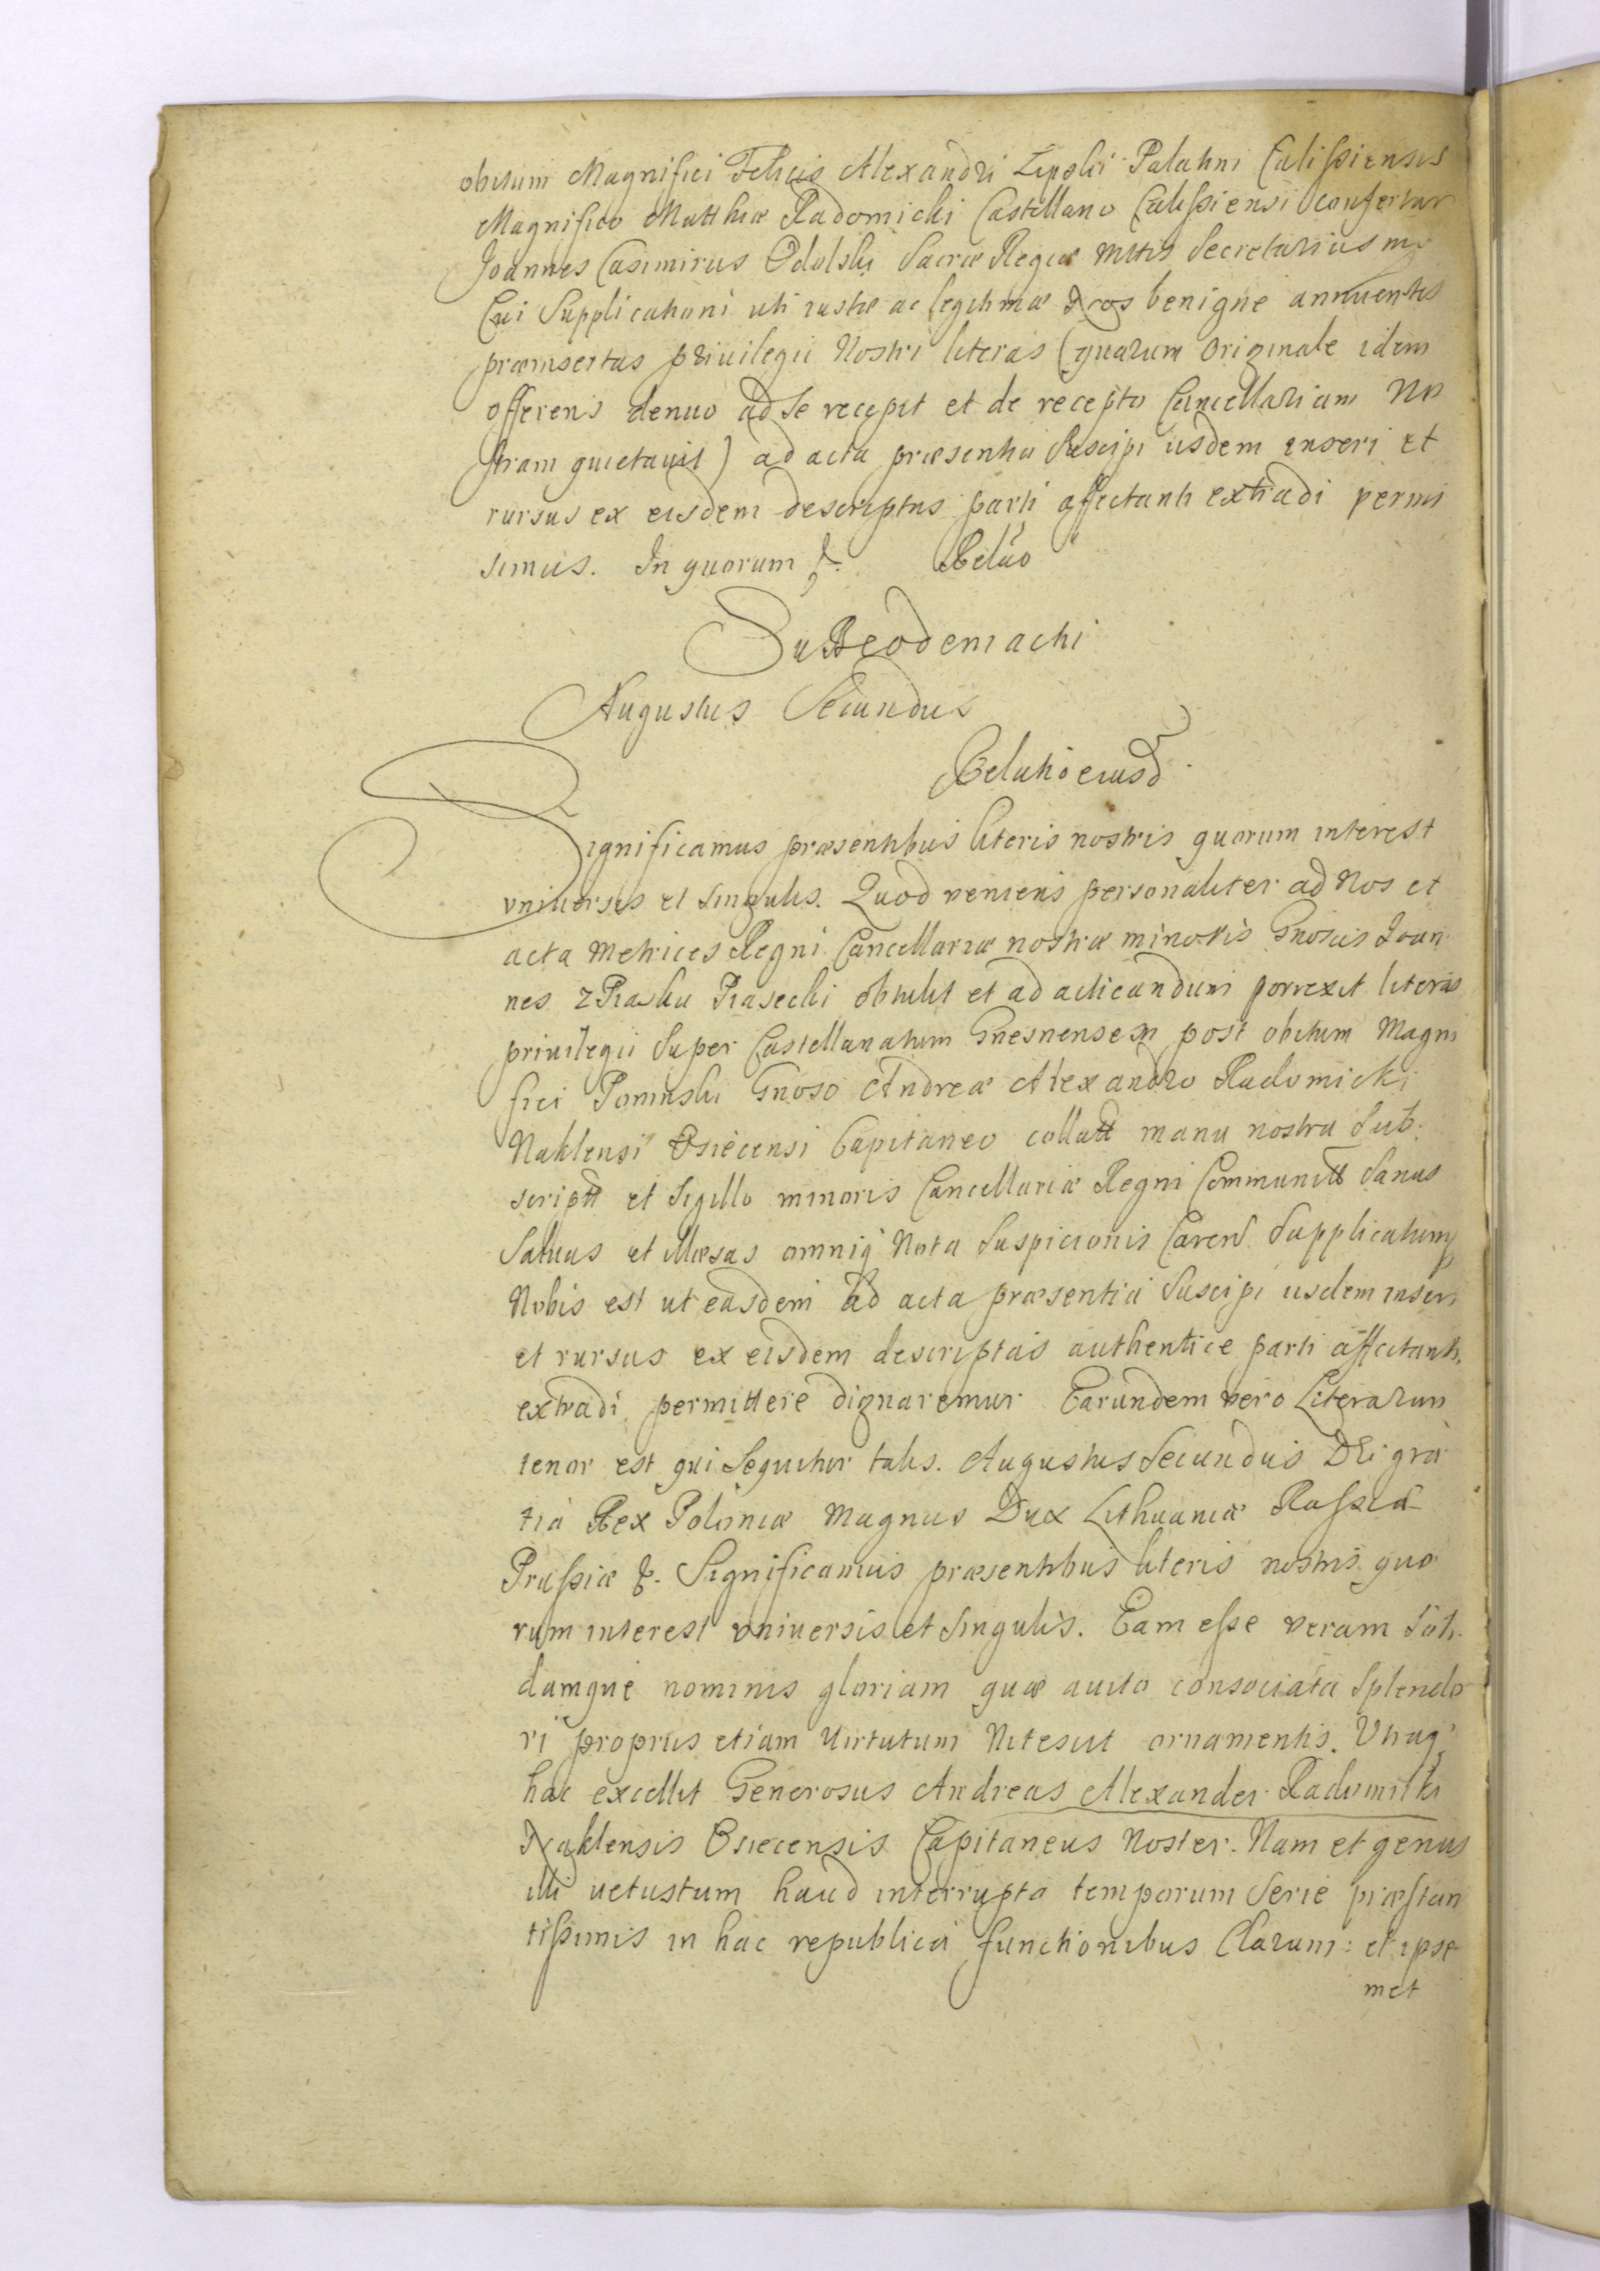 obitum Magnifici Felicis Alexandri Lipski Palatini Calissiensis
Magnifico Matthiæ Radomicki Castellano Calissiensi confertur
Joannes Casimirus Odolski Sacræ Regiæ Mttis Secretarius mp
Cui Supplicationi uti iustæ ac legitimæ Nos benigne annuentes
præinsertas privilegii Nostri literas (quarum originale idem
offerens denuo ad se recepit et de recepto Cancellariam No
stram quietavit) ad acta præsentia Suscipi iisdem inseri et
rursus ex eisdem descriptas parti affectanti extradi permi
simus. In quorum &. Relão
Sub eodem acti
Augustus Secundus
Relatio eiusd
Significamus præsentibus literis nostris quorum interest
vniversis et singulis. Quod veniens personaliter ad Nos et
acta Metrices Regni Cancellariæ nostræ minoris Gnosus Joan
nes z Piasku Piasecki obtulit et ad acticandum porrexit literas
privilegii Super Castellanatum Gnesnensem post obitum Magni
fici Poninski Gnoso Andreæ Alexandro Radomicki
Naklensi Osiecensi Capitaneo collatt manu nostra Sub
scriptt et Sigillo minoris Cancellariæ Regni Communitt Sanas
Salvas et illæsas omniq Nota Suspicionis Caren Supplicatumq
Nobis est ut easdem ad acta præsentia Suscipi iisdem inseri
et rursus ex eisdem descriptas authentice parti affectanti
extradi permittere dignaremur Earundem vero Literarum
tenor est qui Sequitur talis. Augustus Secundus DEi gra
tia Rex Poloniæ Magnus Dux Lithuaniæ Russiæ
Prussiæ &. Significamus præsentibus literis nostris quo
rum interest vniversis et Singulis. Eam esse veram Soli
damque nominis gloriam quæ avito consociata Splendo
ri propriis etiam Virtutum Nitescit ornamentis. Vtraq
hac excellit Generosus Andreas Alexander Radomicki
Naklensis Osiecensis Capitaneus Noster. Nam et genus
illi vetustum haud interrupta temporum Serie præstan
tissimis in hac republica functionibus Clarum: et ipse
met